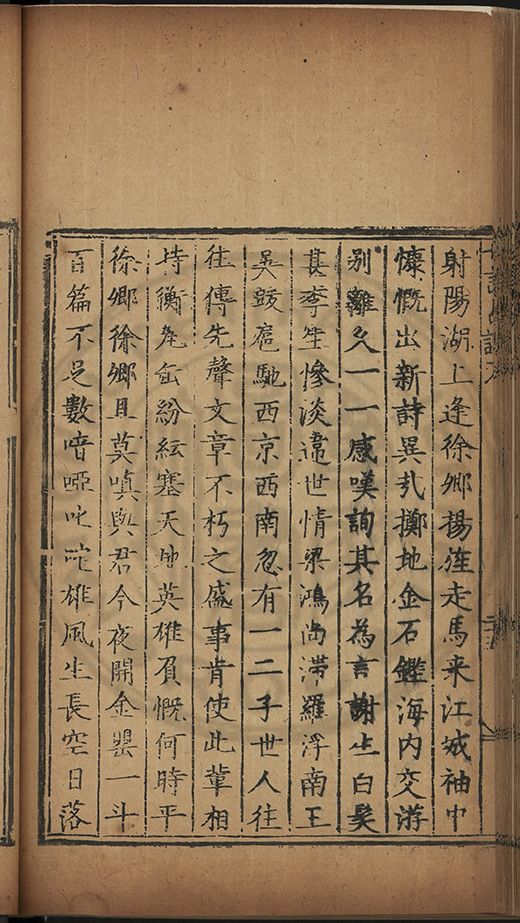 射陽湖上逢徐卿揚涟走馬来江城袖中
慷慨出新詩異孔擲地金石鏗海内交游
别離久一一感嘆詢其名為言謝生白髪
甚李生慘淡違世情梁鴻尚滞羅浮南王
吳跋扈馳西京西南忽有一二子世人往
往傳先聲文章不朽之盛事肯使此輩相
持衡危缶紛紜塞天地英雄負慨何時平
徐卿徐卿且莫嗔與君今夜開金罌一斗
百篇不足數喑啞叱咤雄風生長空日落